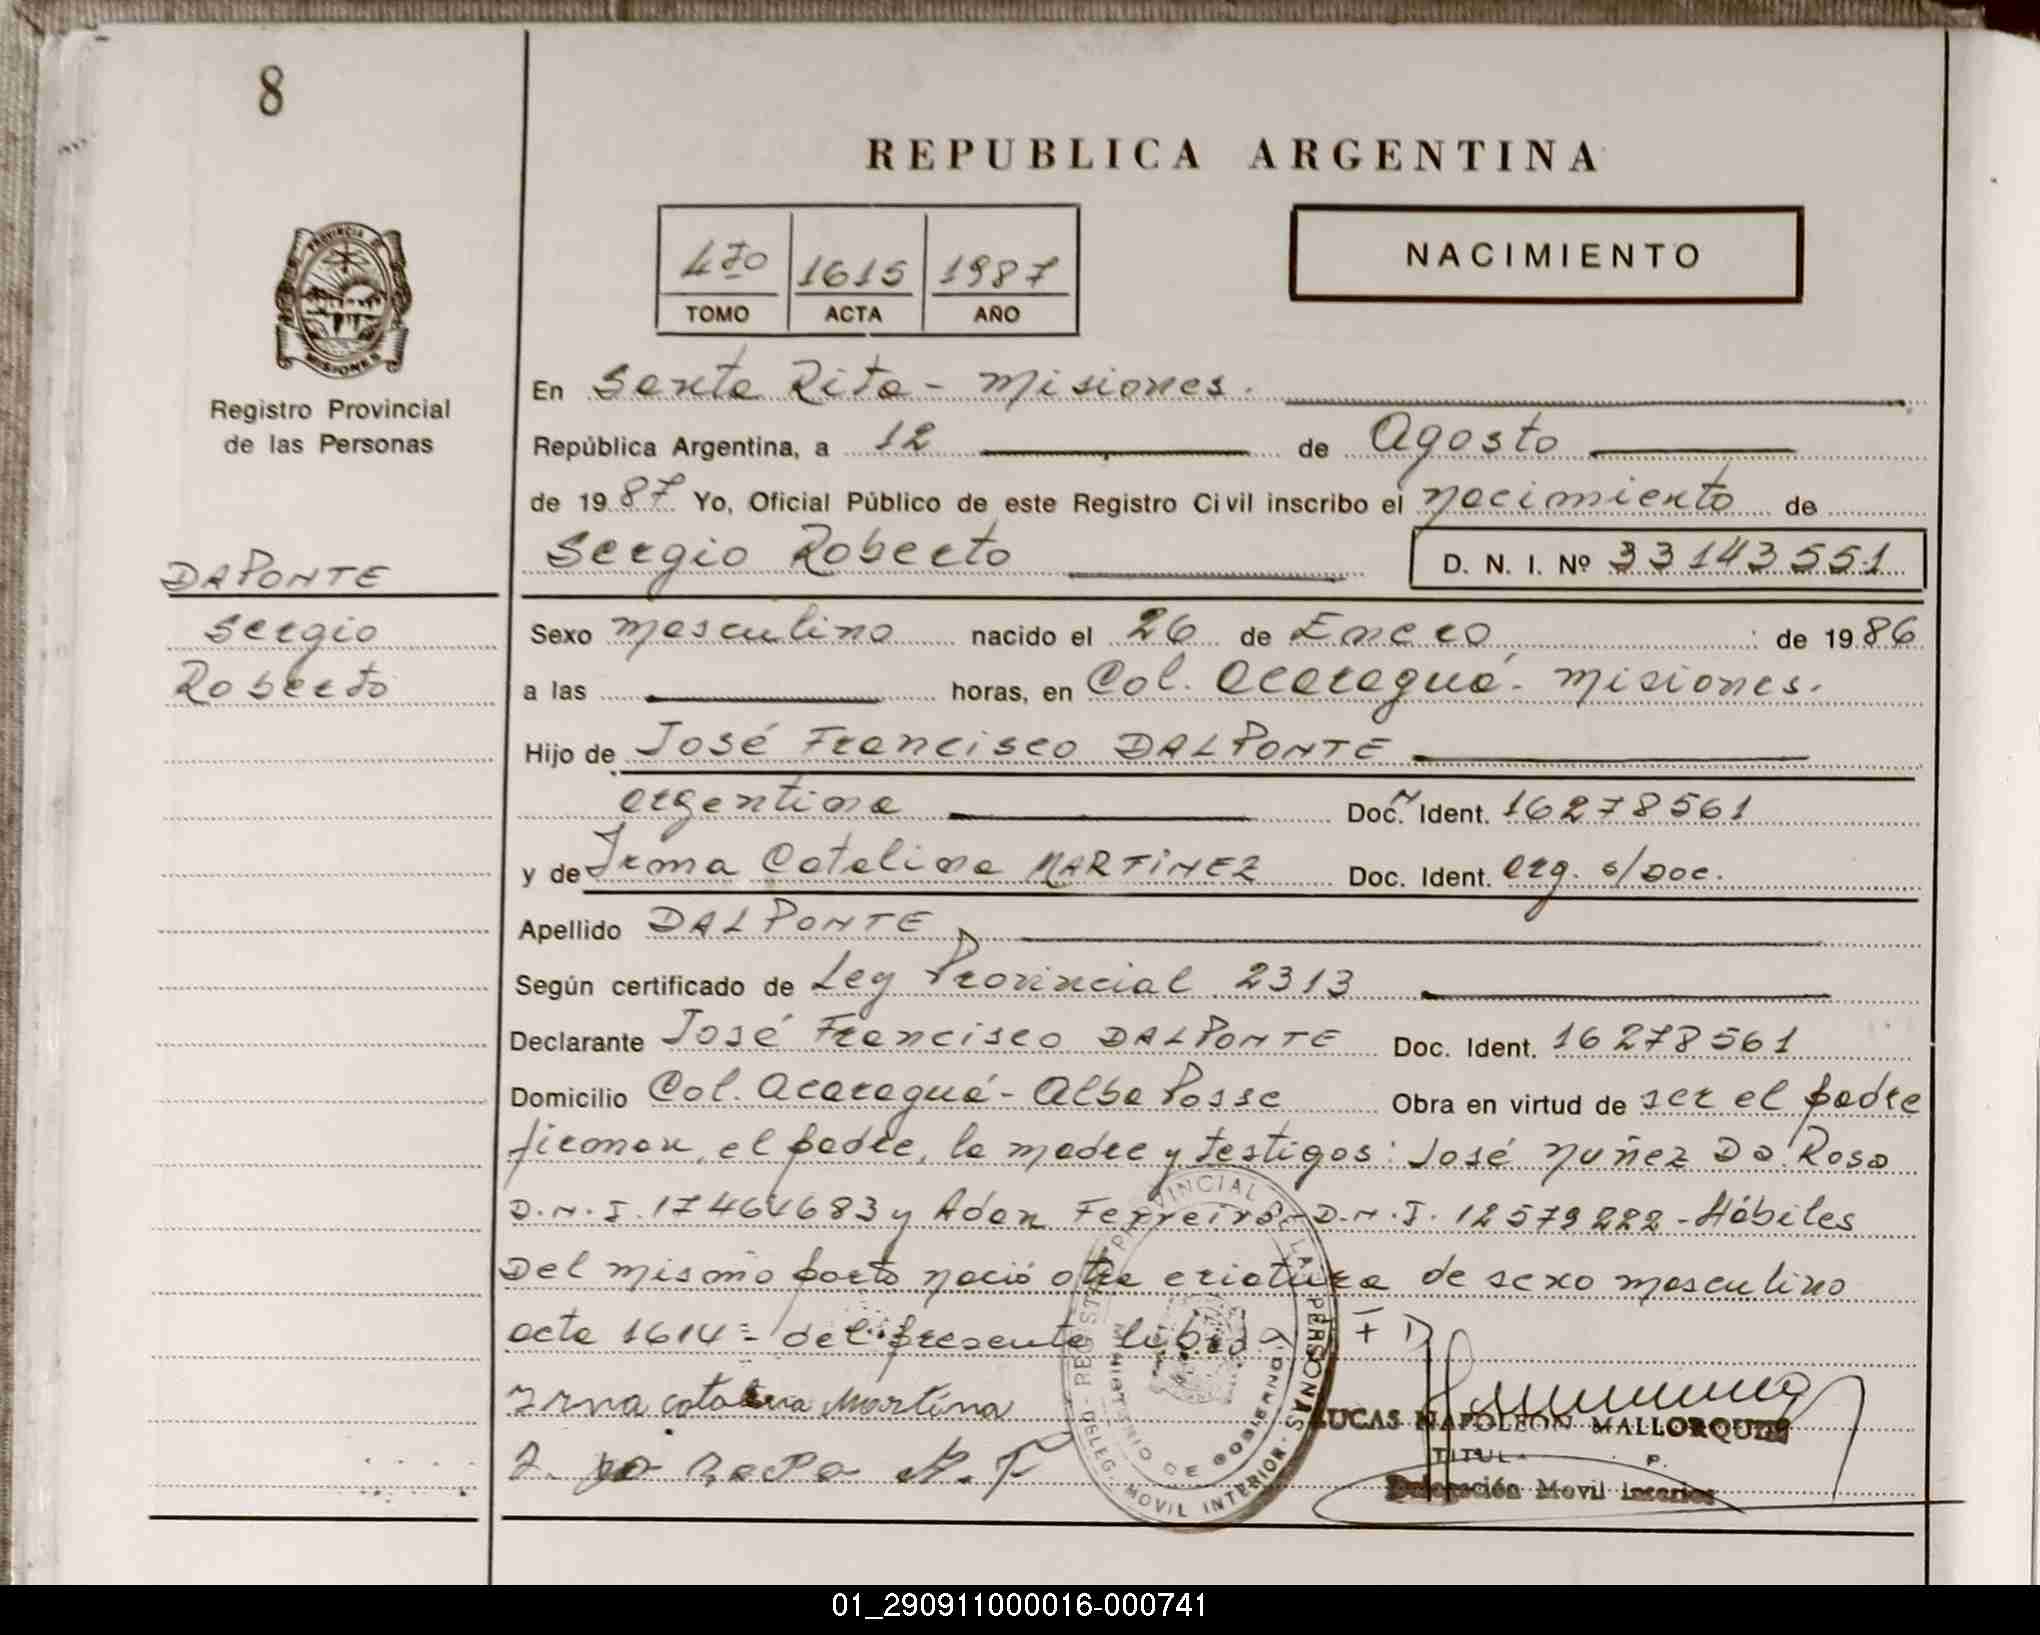 8
REPUBLICA ARGENTINA
4to 1615 1987
TOMO ACTA AÑO
NACIMIENTO
PROVINCIA DE MISIONES
Registro Provincial
de las Personas
En Santa Rita - Misiones.
República Argentina, a 12 de Agosto
de 1987 Yo, Oficial Público de este Registro Civil inscribo el nacimiento de
Sergio Roberto D. N. I. Nº 33143551
DAPONTE
Sergio
Roberto
Sexo masculino nacido el 26 de Enero de 1986
a las horas, en Col. Acaraguá - Misiones.
Hijo de José Francisco DALPONTE
argentina Doc. Ident. 16278561
y de Irma Catalina MARTINEZ Doc. Ident. arg. s/Doc.
Apellido DALPONTE
Según certificado de Ley Provincial 2313
Declarante José Francisco DALPONTE Doc. Ident. 16278561
Domicilio Col. Acaraguá - Alba Posse Obra en virtud de ser el padre
firman, el padre, la madre y testigos: José Nuñez Da Rosa
D.N.I. 17464683 y Adan Ferreira - D.N.I. 12579222 - Hábiles
Del mismo parto nació otra criatura de sexo masculino
acta 1614 - del presente libro
Irna catalina Martina
REGISTRO PROVINCIAL DE LAS PERSONAS
DELEG. MOVIL INTERIOR
MINISTERIO DE GOBIERNO
LUCAS NAPOLEON MALLORQUIN
Delegación Movil Interior
01_290911000016-000741